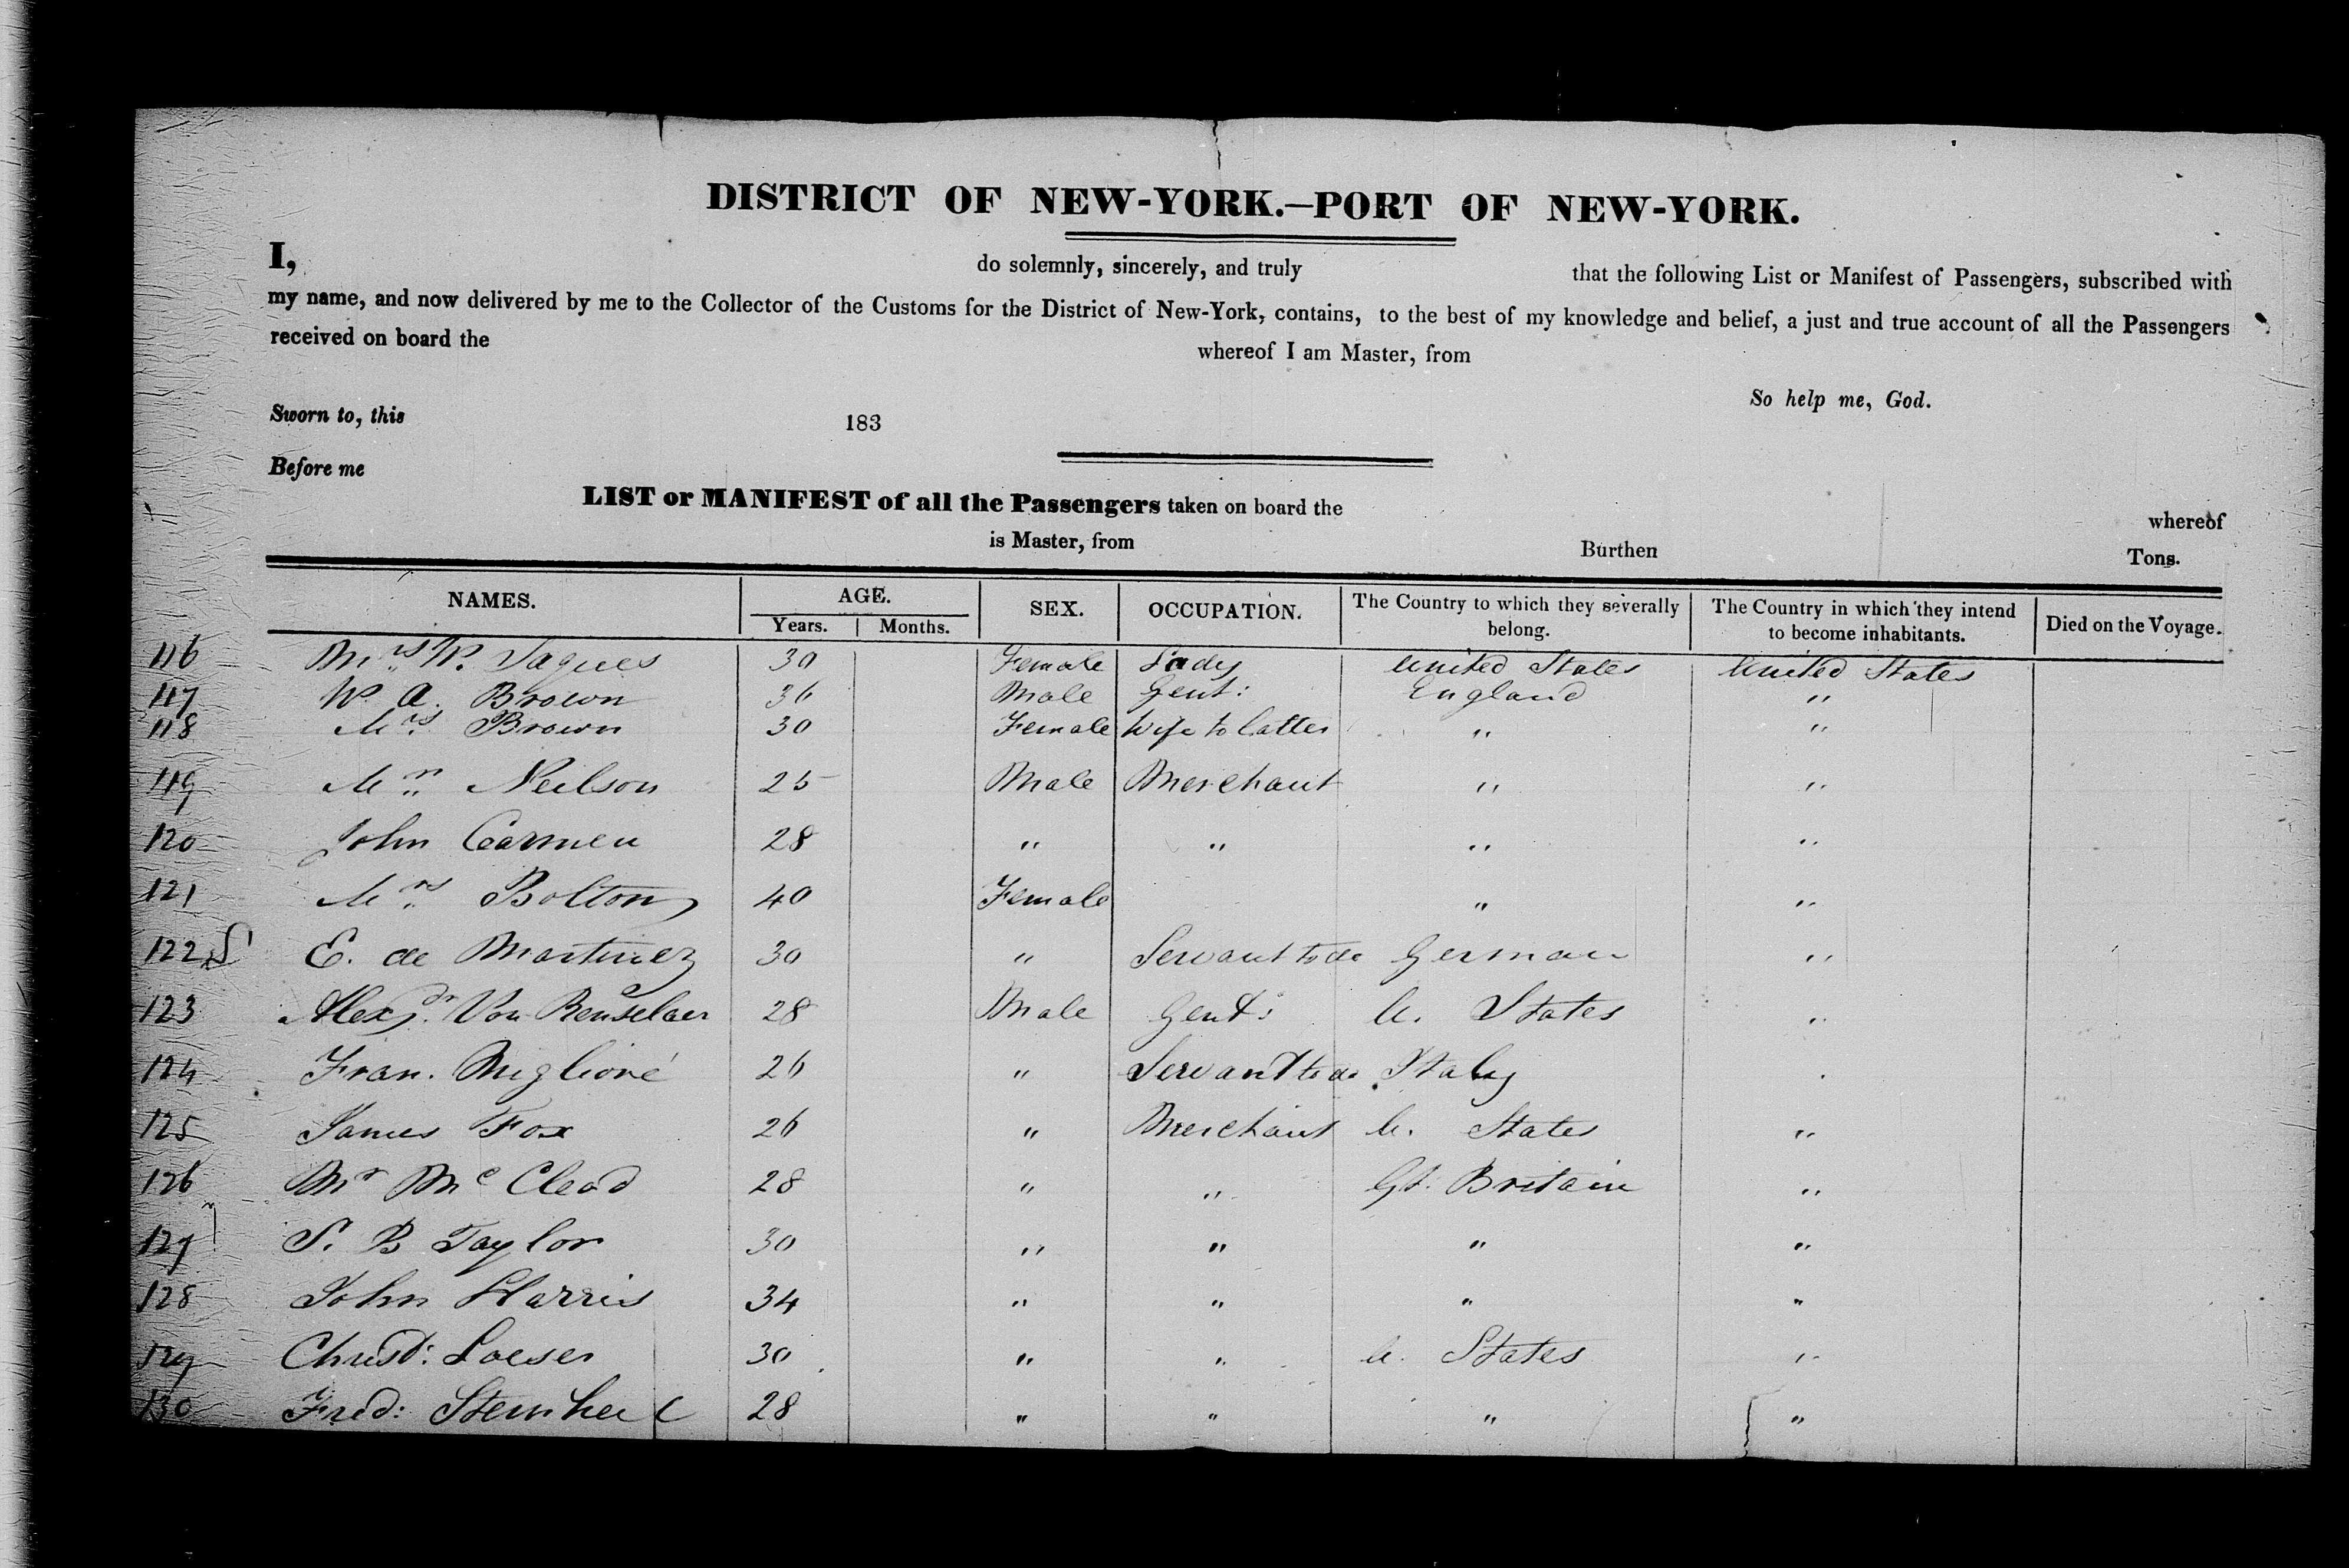 DISTRICT OF NEW-YORK.—PORT OF NEW-YORK.
I, do solemnly, sincerely, and truly that the following List or Manifest of Passengers, subscribed with
my name, and now delivered by me to the Collector of the Customs for the District of New-York, contains, to the best of my knowledge and belief, a just and true account of all the Passengers
received on board the whereof I am Master, from
So help me, God.
Sworn to, this 183
Before me
LIST or MANIFEST of all the Passengers taken on board the whereof
is Master, from Burthen Tons.
NAMES. AGE. SEX. OCCUPATION. The Country to which they severally belong. The Country in which they intend to become inhabitants. Died on the Voyage.
Years. Months.
116 Mrs W. Jaques 30 Female Lady United States United States
117 W. A. Brown 36 Male Gent: England "
118 Mrs Brown 30 Female Wife to latter " "
119 Mr Neilson 25 Male Merchant " "
120 John Carmen 28 " " " "
121 Mrs Bolton 40 Female " "
122 E. de Martinez 30 " Servant to do German "
123 Alexdr. Van Renselaer 28 Male Gent: U. States "
124 Fran. Miglioré 26 " Servant to do Italy "
125 James Fox 26 " Merchant U. States "
126 Mr Mc Cleod 28 " " Gt. Britain "
127 S. B Taylor 30 " " " "
128 John Harris 34 " " " "
129 Christ: Loeser 30 " " U. States "
130 Fred: 28 " " " "